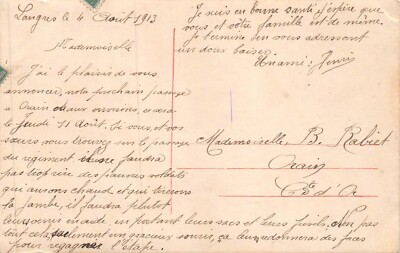 Langres le 4 Août 1913
Mademoiselle
J'ai le plaisir de vous
annoncer, notre prochain passage
à Orain ou aux environs, ce sera
le Jeudi 11 Août. Si vous, et vos
sœurs vous trouvez sur le passage
du régiment il ne faudra
pas trop rire des pauvres soldats
qui aurons chaud et qui tirerons
la jambe, il faudra plutôt
leur venir en aide en portant leurs sacs et leurs fusils, non pas
tout cela, seulement un gracieux sourire, ça leur redonnera des forces
pour regagner l'étape.
Je suis en bonne santé, j'espère que
vous et votre famille est de même.
Je termine en vous adressant
un doux baiser.
Henri
Mademoiselle, B. Rabiet
Orain
Côte d'Or